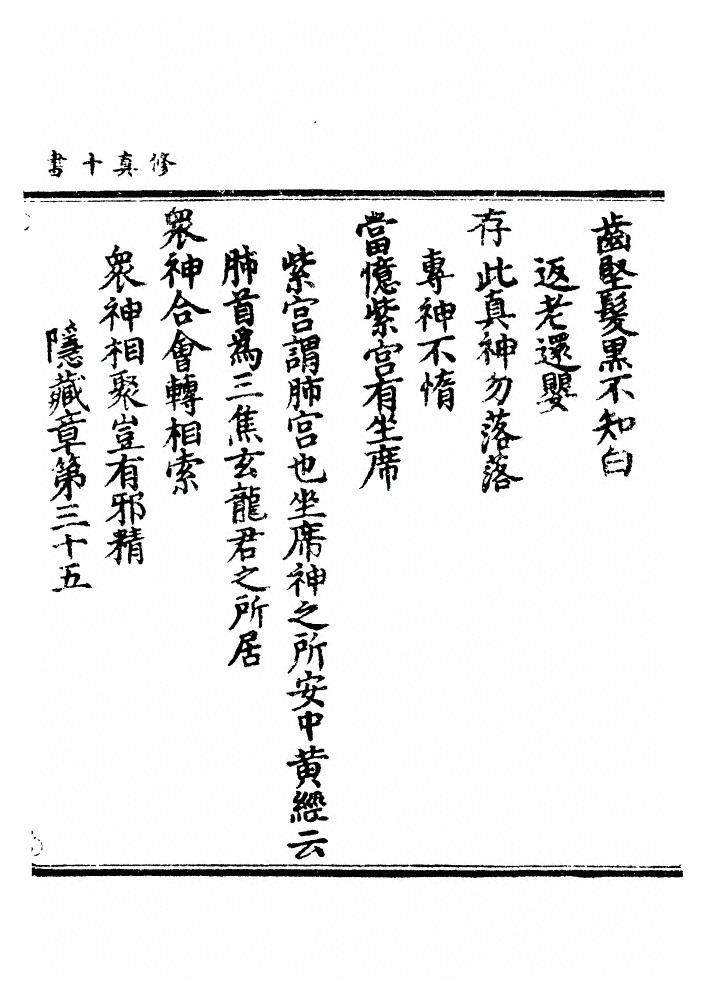 修真十書
齒堅髮黒不知白
返老還嬰
存此真神勿落落
專神不惰
當憶紫宫有坐席
紫宫謂肺宫也坐席神之所安中黄經云
肺首爲三焦玄龍君之所居
衆神合會轉相索
衆神相聚豈有邪精
隱藏章第三十五